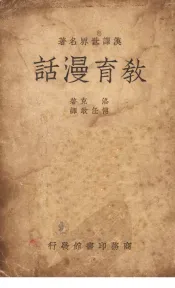 漢譯世界名著
教育漫話
洛克著
傅任敢譯
商務印書館發行